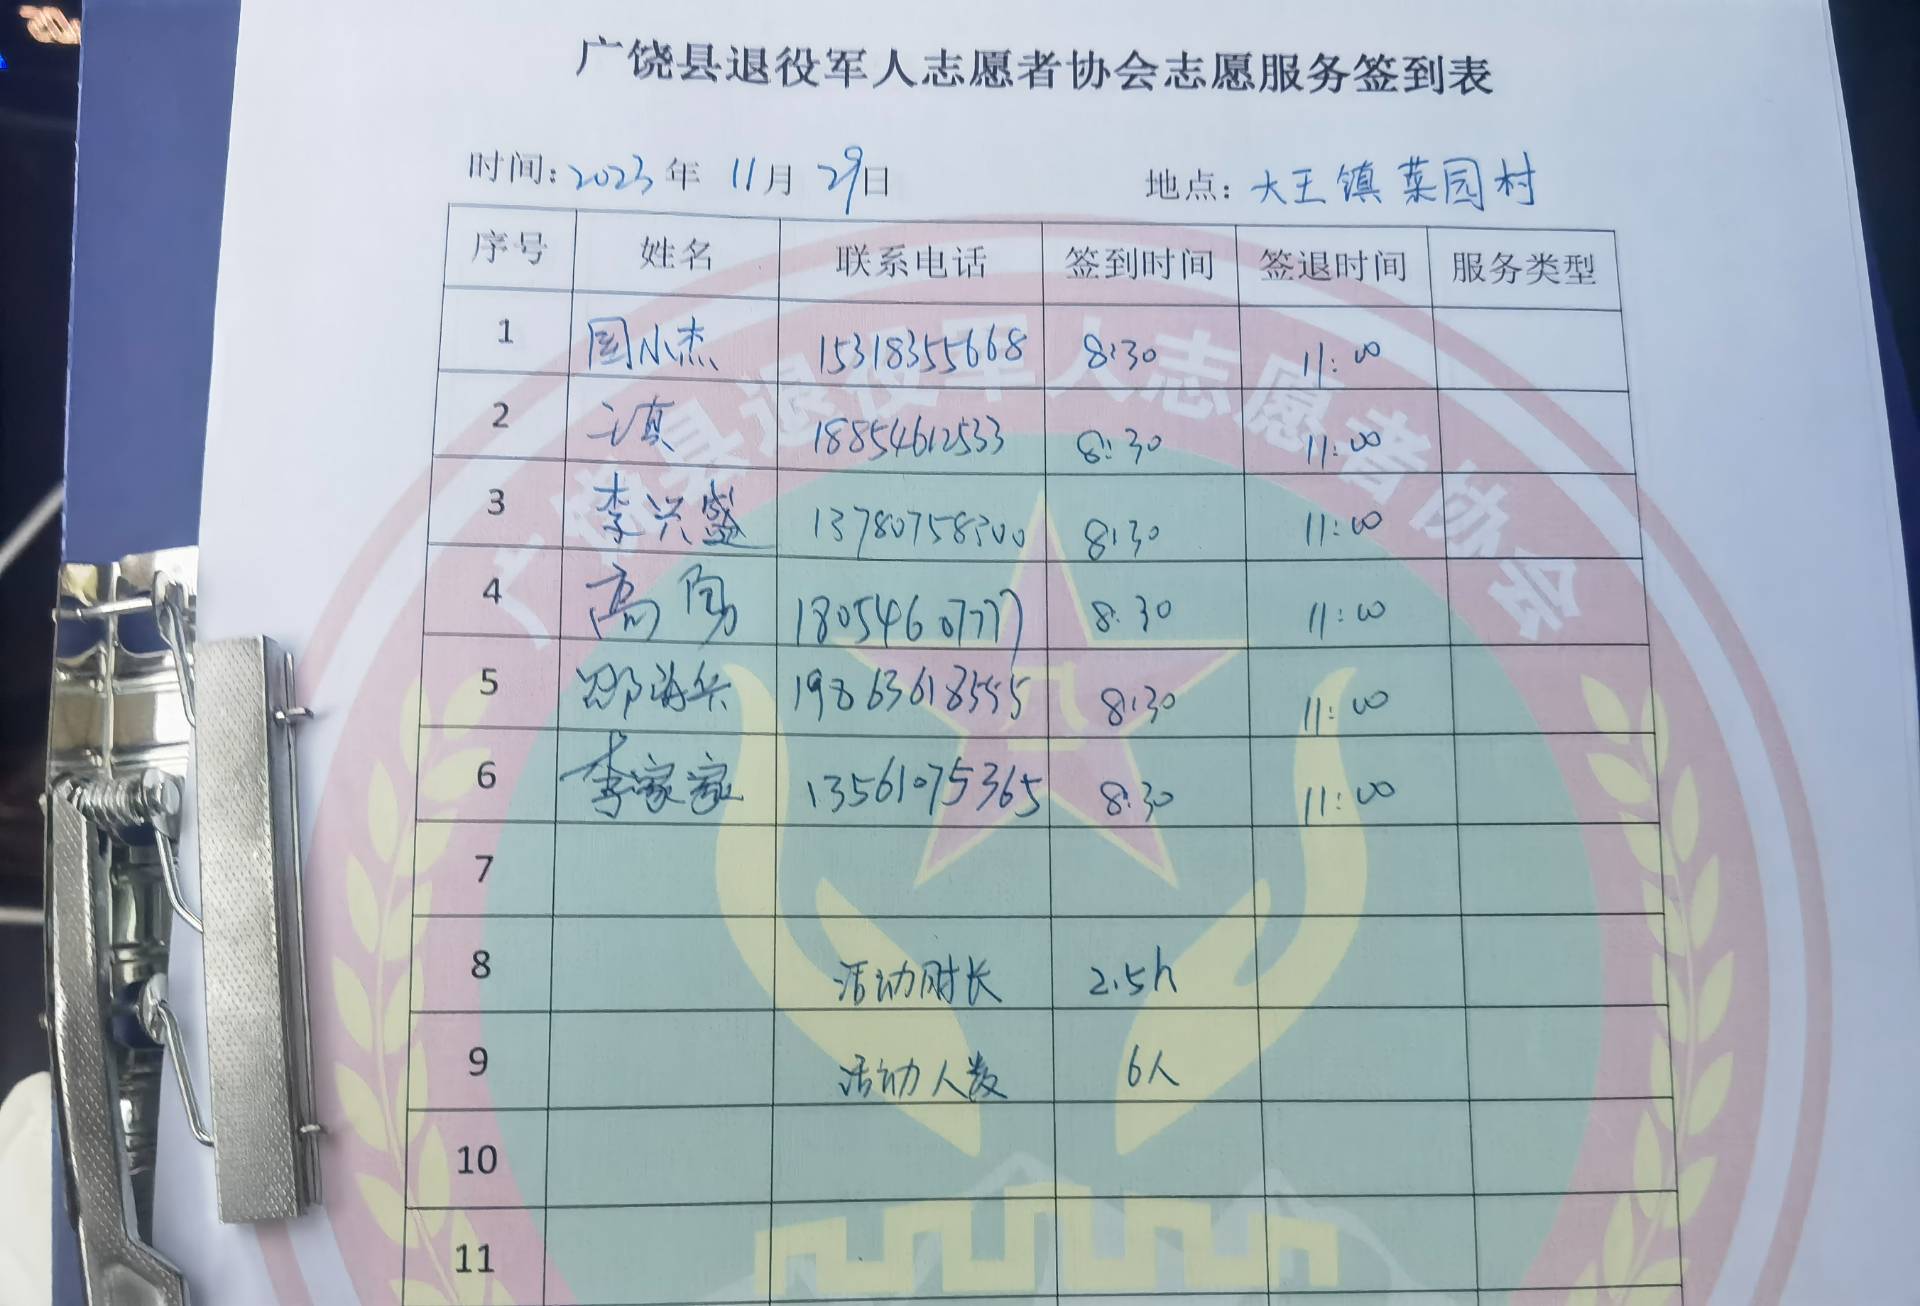 广饶县退役军人志愿者协会志愿服务签到表
时间: 2023年 11月 29日 地点: 大王镇菜园村
序号 姓名 联系电话 签到时间 签退时间 服务类型
1 国小杰 15318355668 8:30 11:00
2 王真 18854612533 8:30 11:00
3 李兴盛 13780758300 8:30 11:00
4 高勇 18054607777 8:30 11:00
5 邵海兵 19863618555 8:30 11:00
6 李家家 13561075365 8:30 11:00
7
8 活动时长 2.5h
9 活动人数 6人
10
11
广饶县退役军人志愿者协会